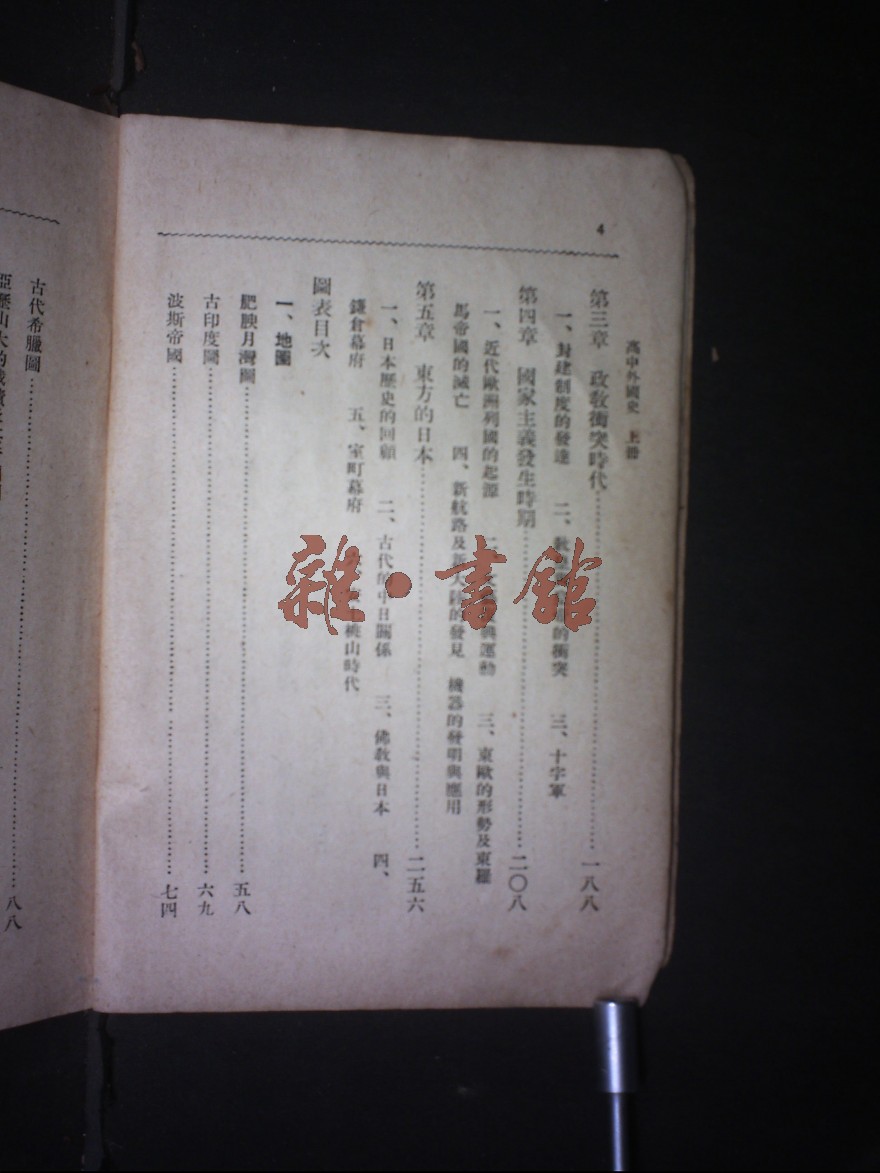 4
高中外國史 上冊
第三章 政敎衝突時代……一八八
一、封建制度的發達 二、敎 的衝突 三、十字軍
第四章 國家主義發生時期……二〇八
一、近代歐洲列國的起源 二、 運動 三、東歐的形勢及東羅
馬帝國的滅亡 四、新航路及新大陸的發見 機器的發明與應用
第五章 東方的日本……二五六
一、日本歷史的回顧 二、古代的中日關係 三、佛敎與日本 四、
鎌倉幕府 五、室町幕府 桃山時代
圖表目次
一、地圖
肥腴月灣圖……五八
古印度圖……六九
波斯帝國……七四
古代希臘圖……八八
亞歷山大的
雜·書館